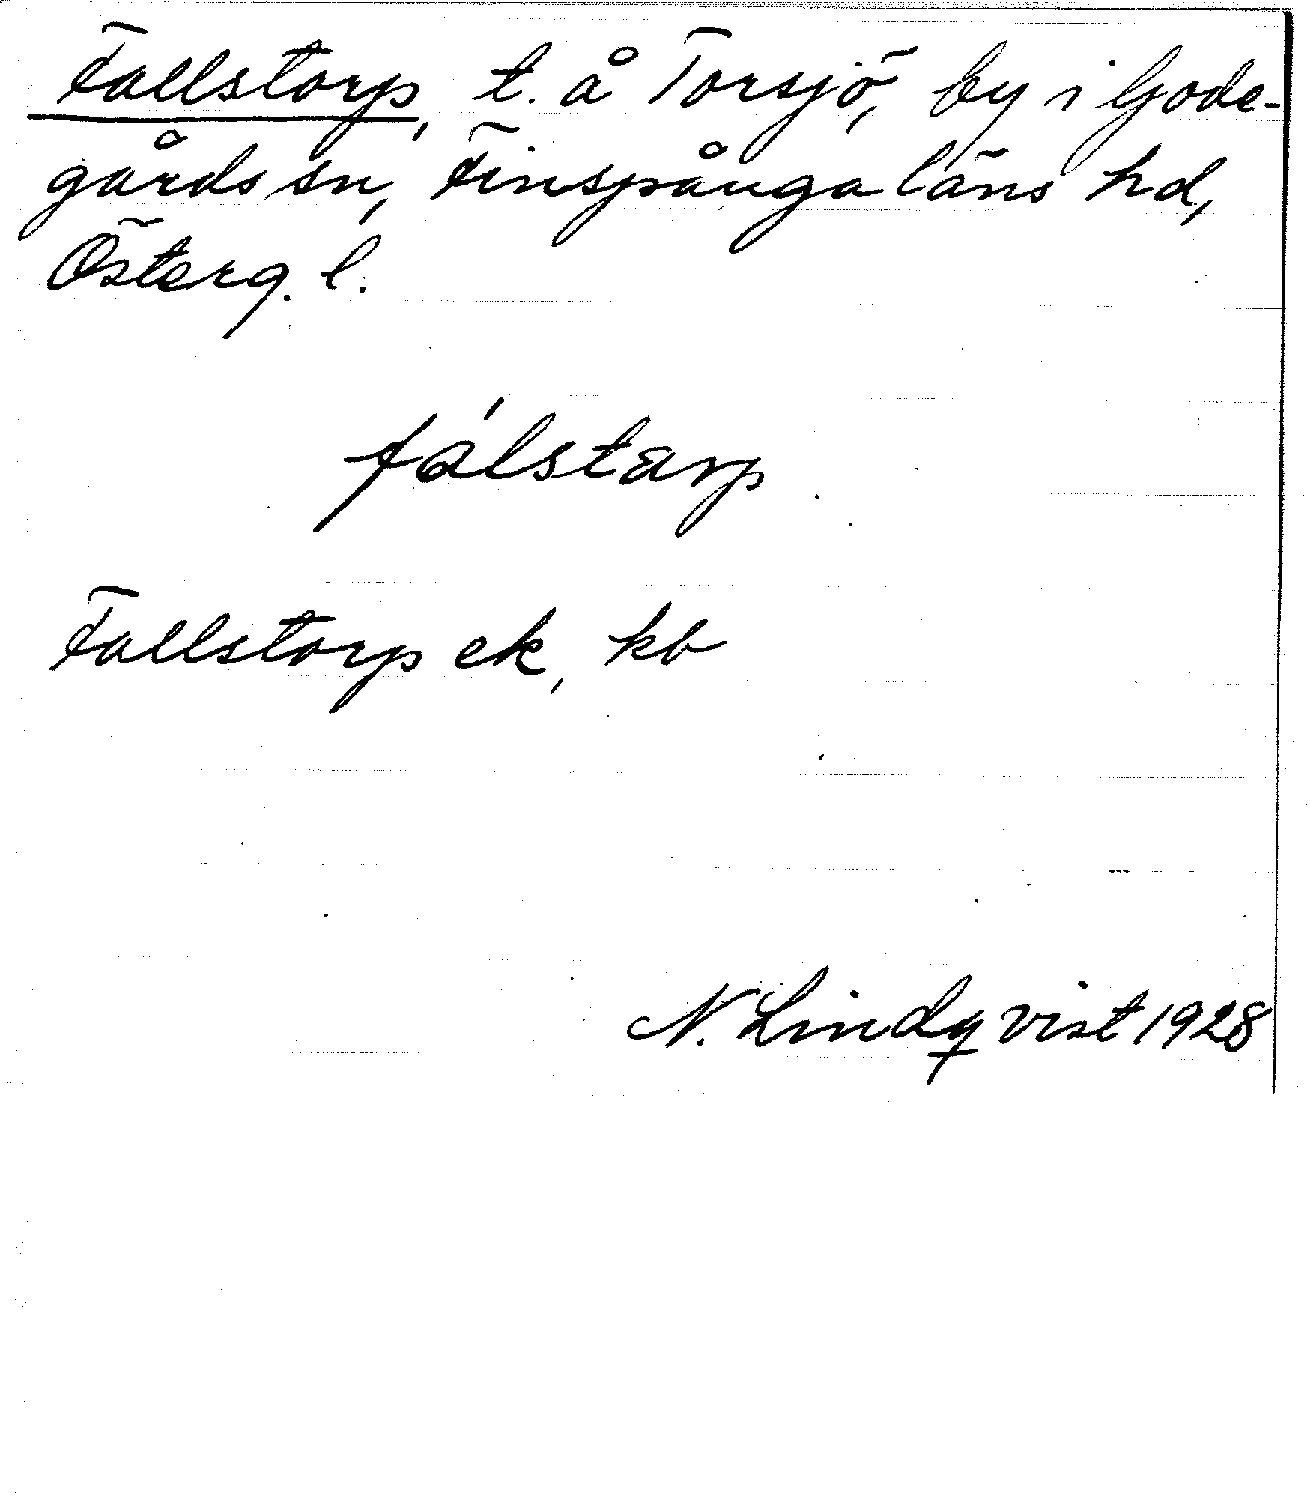 Fallstorp, t. å Torsjö, by i Gode-
gårds sn, Finspånga läns hd,
Österg. l.
fálstarp
Fallstorp ek, kb
N. Lindqvist 1928